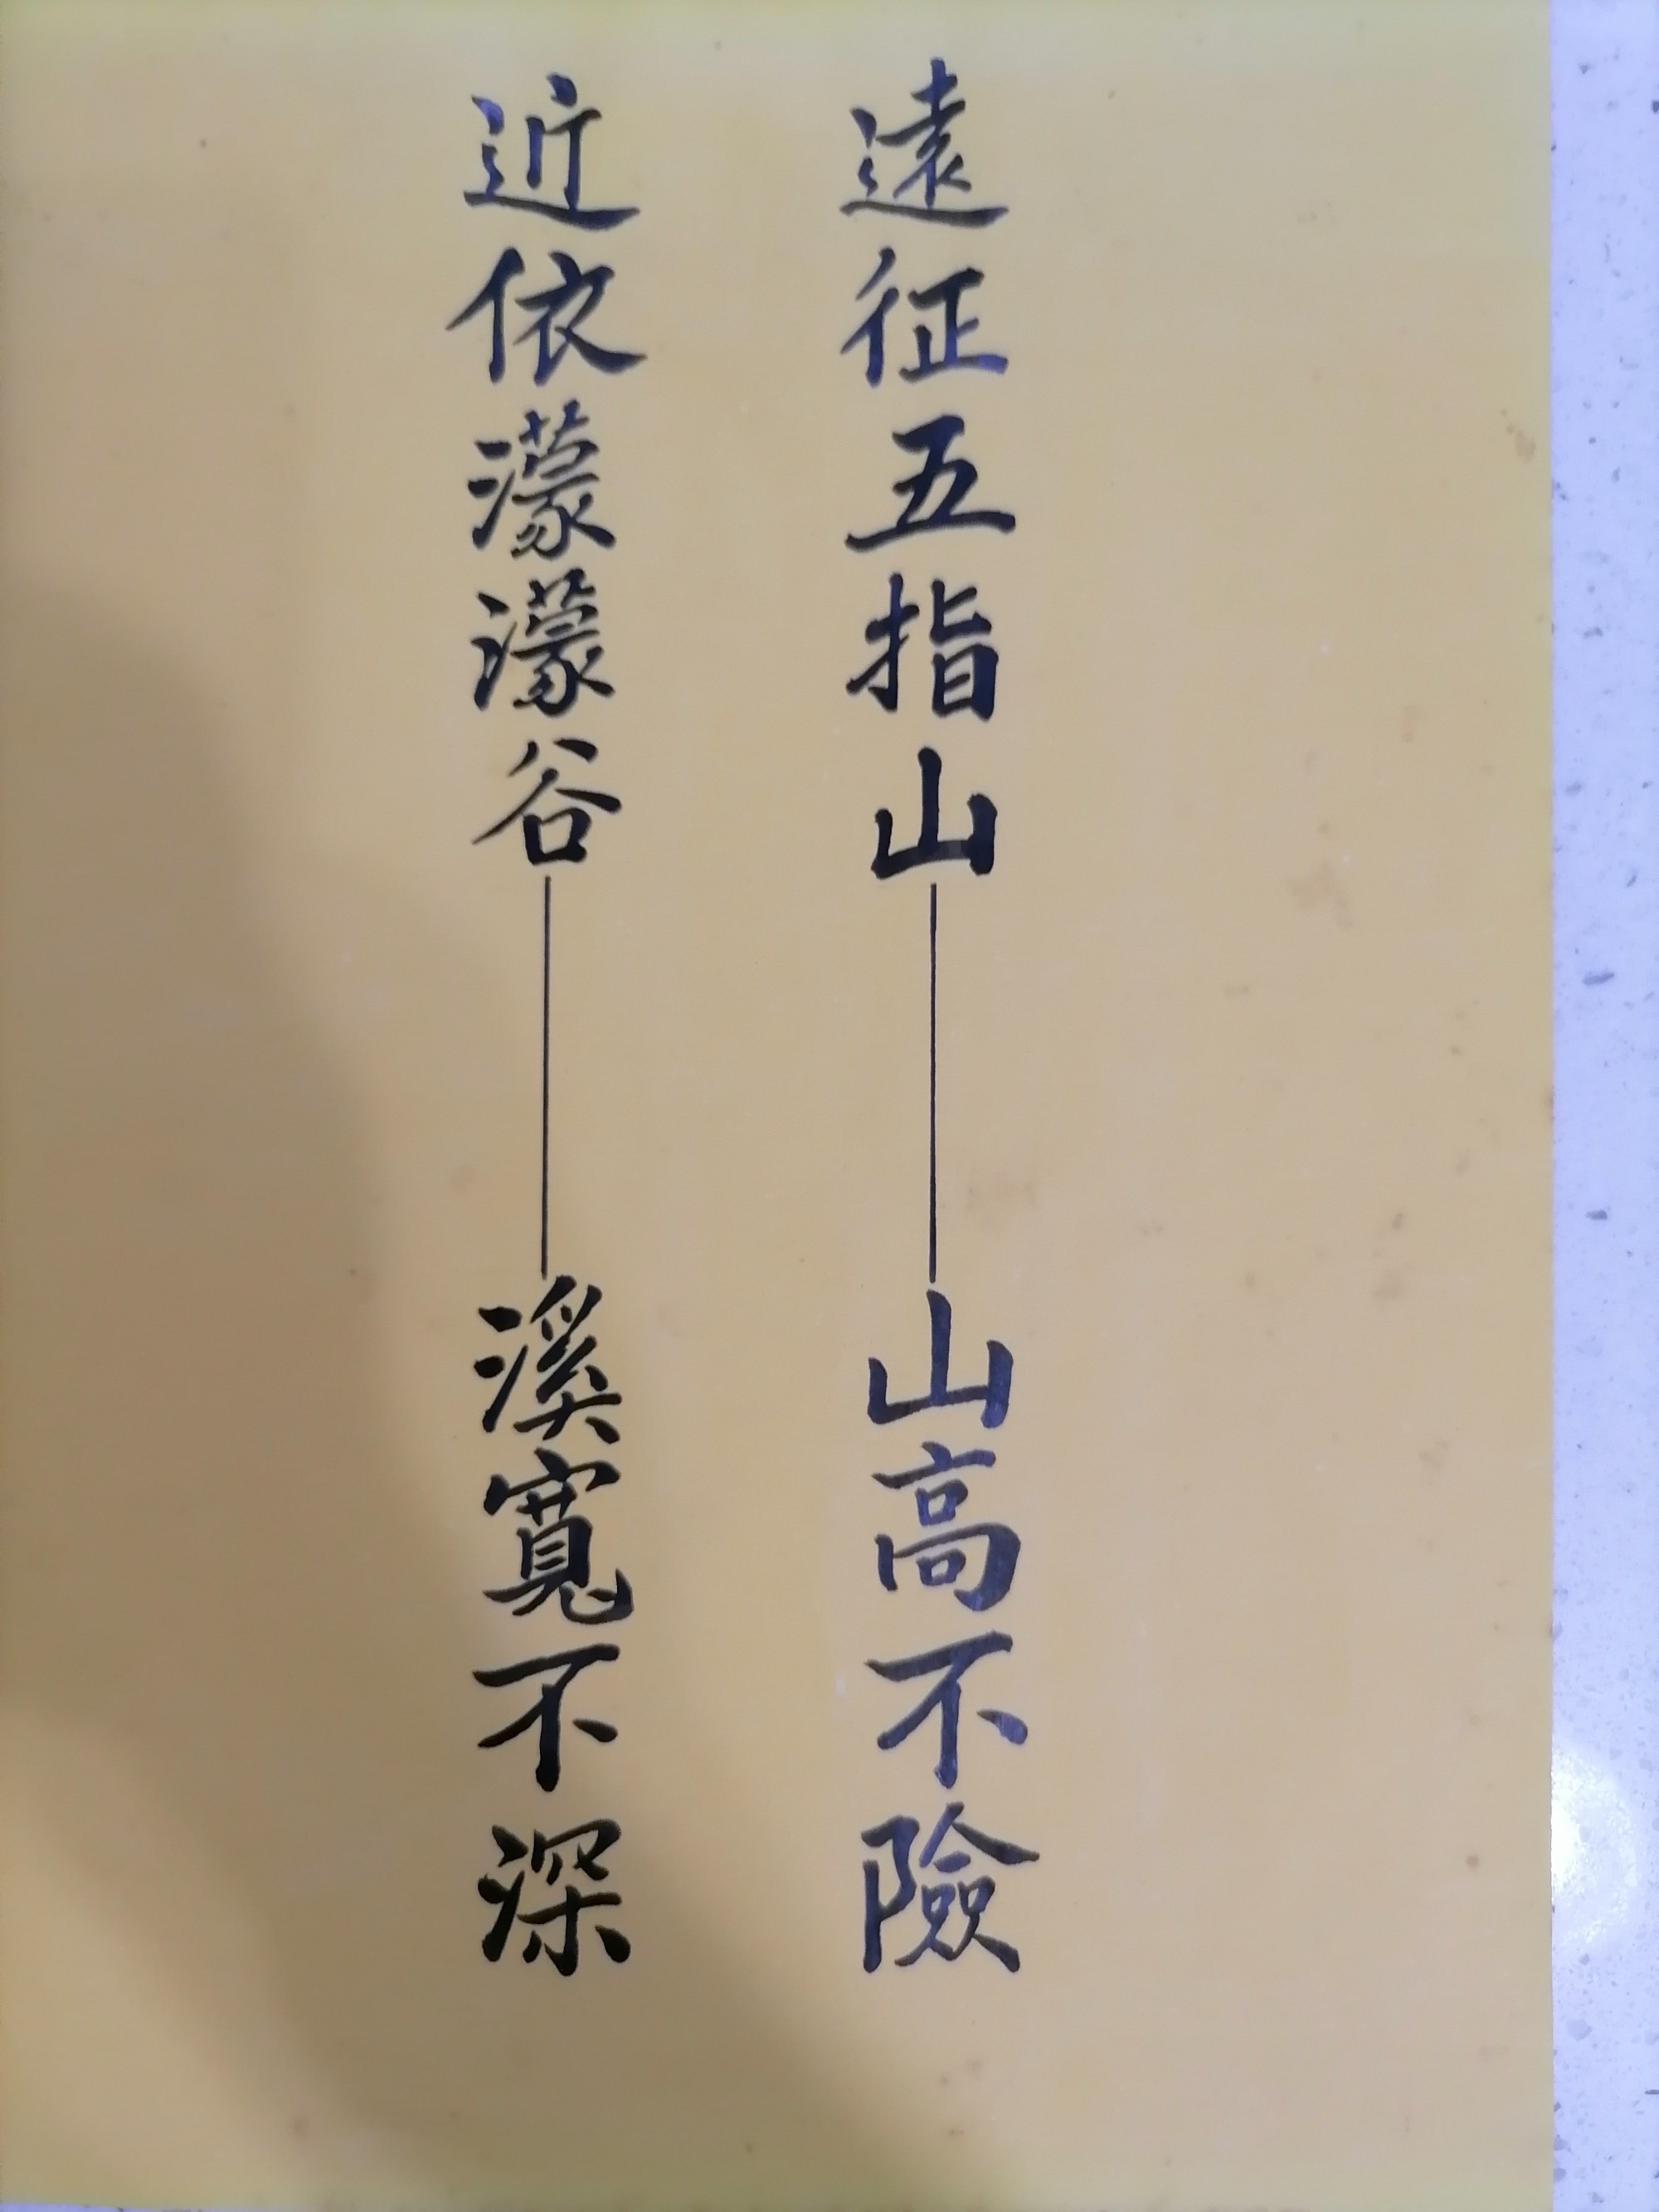 遠征五指山——山高不險
近依濛濛谷——溪寬不深